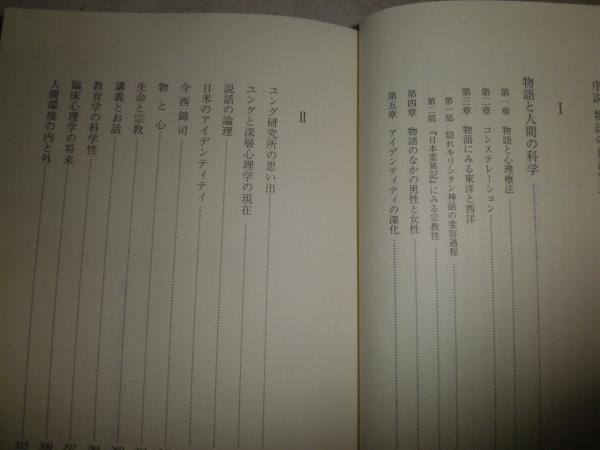 序説 物語の
Ⅰ
物語と人間の科学
第一章 物語と心理療法
第二章 コンステレーション
第三章 物語にみる東洋と西洋
第一部 隠れキリシタン神話の変容過程
第二部 『日本霊異記』にみる宗教性
第四章 物語のなかの男性と女性
第五章 アイデンティティの深化
Ⅱ
ユング研究所の思い出
ユングと深層心理学の現在
説話の論理
日米のアイデンティティ
今西錦司
物と心
生命と宗教
講義とお話
教育学の科学性
臨床心理学の将来
人間環境の内と外